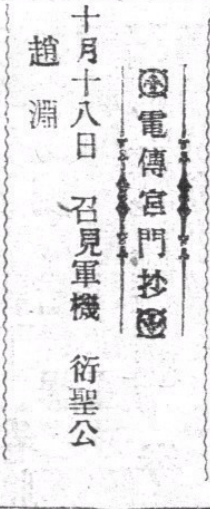 電傳宮門抄
十月十八日　召見軍機　衍聖公
趙淵